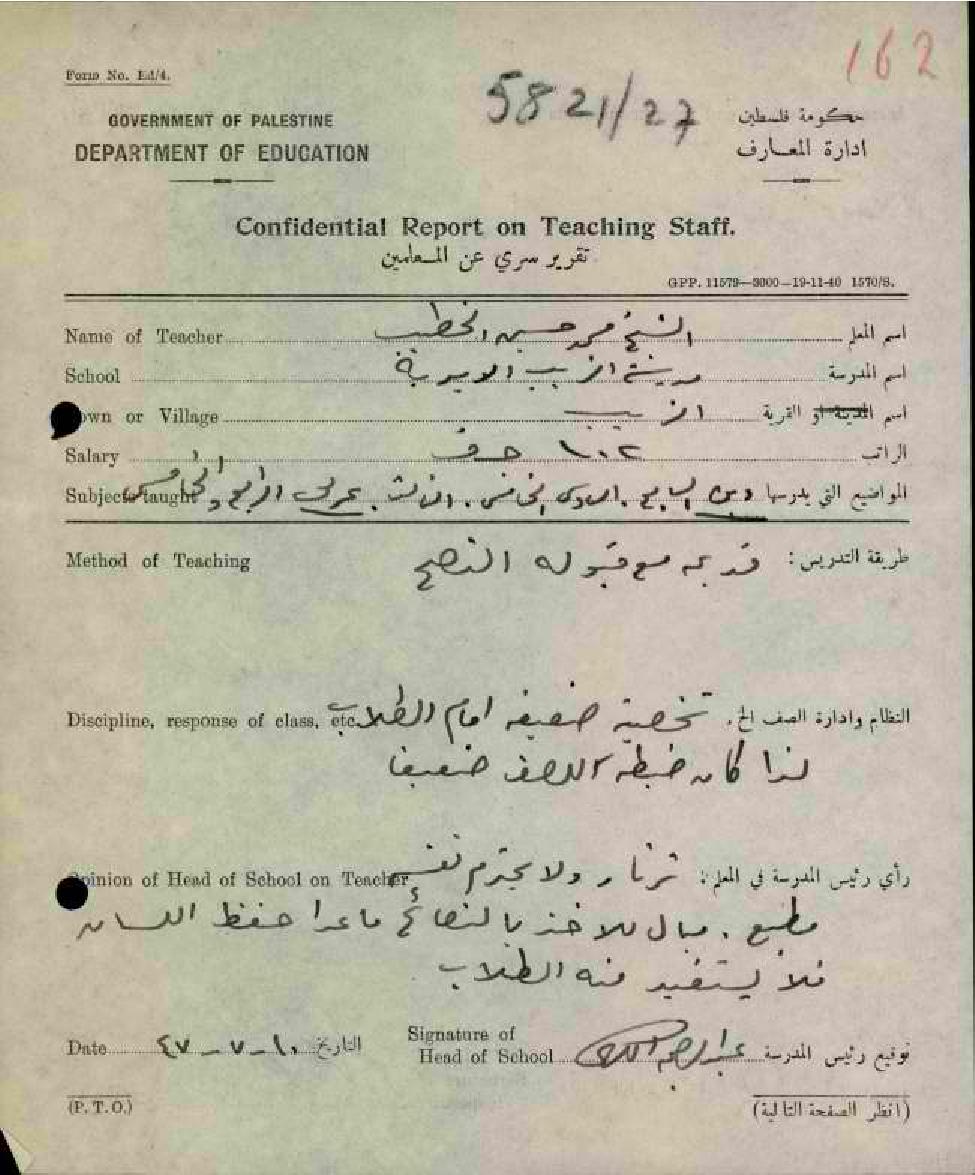 162
Form No. Ed/4.
5821/27
GOVERNMENT OF PALESTINE
DEPARTMENT OF EDUCATION
حكومة فلسطين
ادارة المعارف
Confidential Report on Teaching Staff.
تقرير سري عن المعلمين
GPP. 11579—3000—19-11-40 1570/S.
Name of Teacher الشيخ محمد حسين الخطيب اسم المعلم
School مدرسة الزيب الاميرية اسم المدرسة
Town or Village الزيب اسم المدينة او القرية
Salary ١٠٢ جـ ف الراتب
Subjects taught دين السابع، السادس، الخامس، الثالث، عربي الرابع والخامس المواضيع التي يدرسها
Method of Teaching قديمة مع قبوله النصح طريقة التدريس:
Discipline, response of class, etc. شخصية ضعيفة امام الطلاب النظام وادارة الصف الخ.
لذا كان ضبطه للصف ضعيفا
Opinion of Head of School on Teacher ثرثار ولا يحترم نفسه رأي رئيس المدرسة في المعلم:
مطيع. ميال للاخذ بالنصائح ما عدا حفظ اللسان
فلا يستفيد منه الطلاب
Date ١٠-٧-٤٧ التاريخ
Signature of
Head of School توقيع رئيس المدرسة
(P.T.O.) (انظر الصفحة التالية)